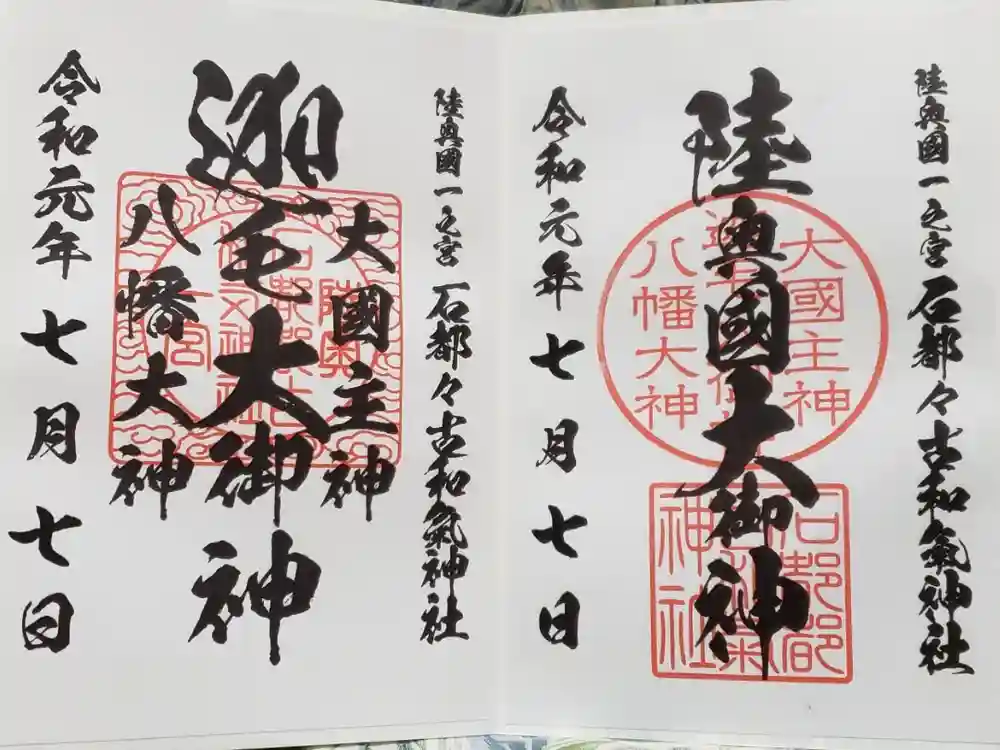 陸奥國一之宮 石都々古和氣神社
陸奥國大御神
大國主神
八幡大神
石都都
神社
令和元年七月七日
陸奥國一之宮 石都々古和氣神社
大國主神
迦毛大御神
八幡大神
陸奥
一宮
令和元年七月七日